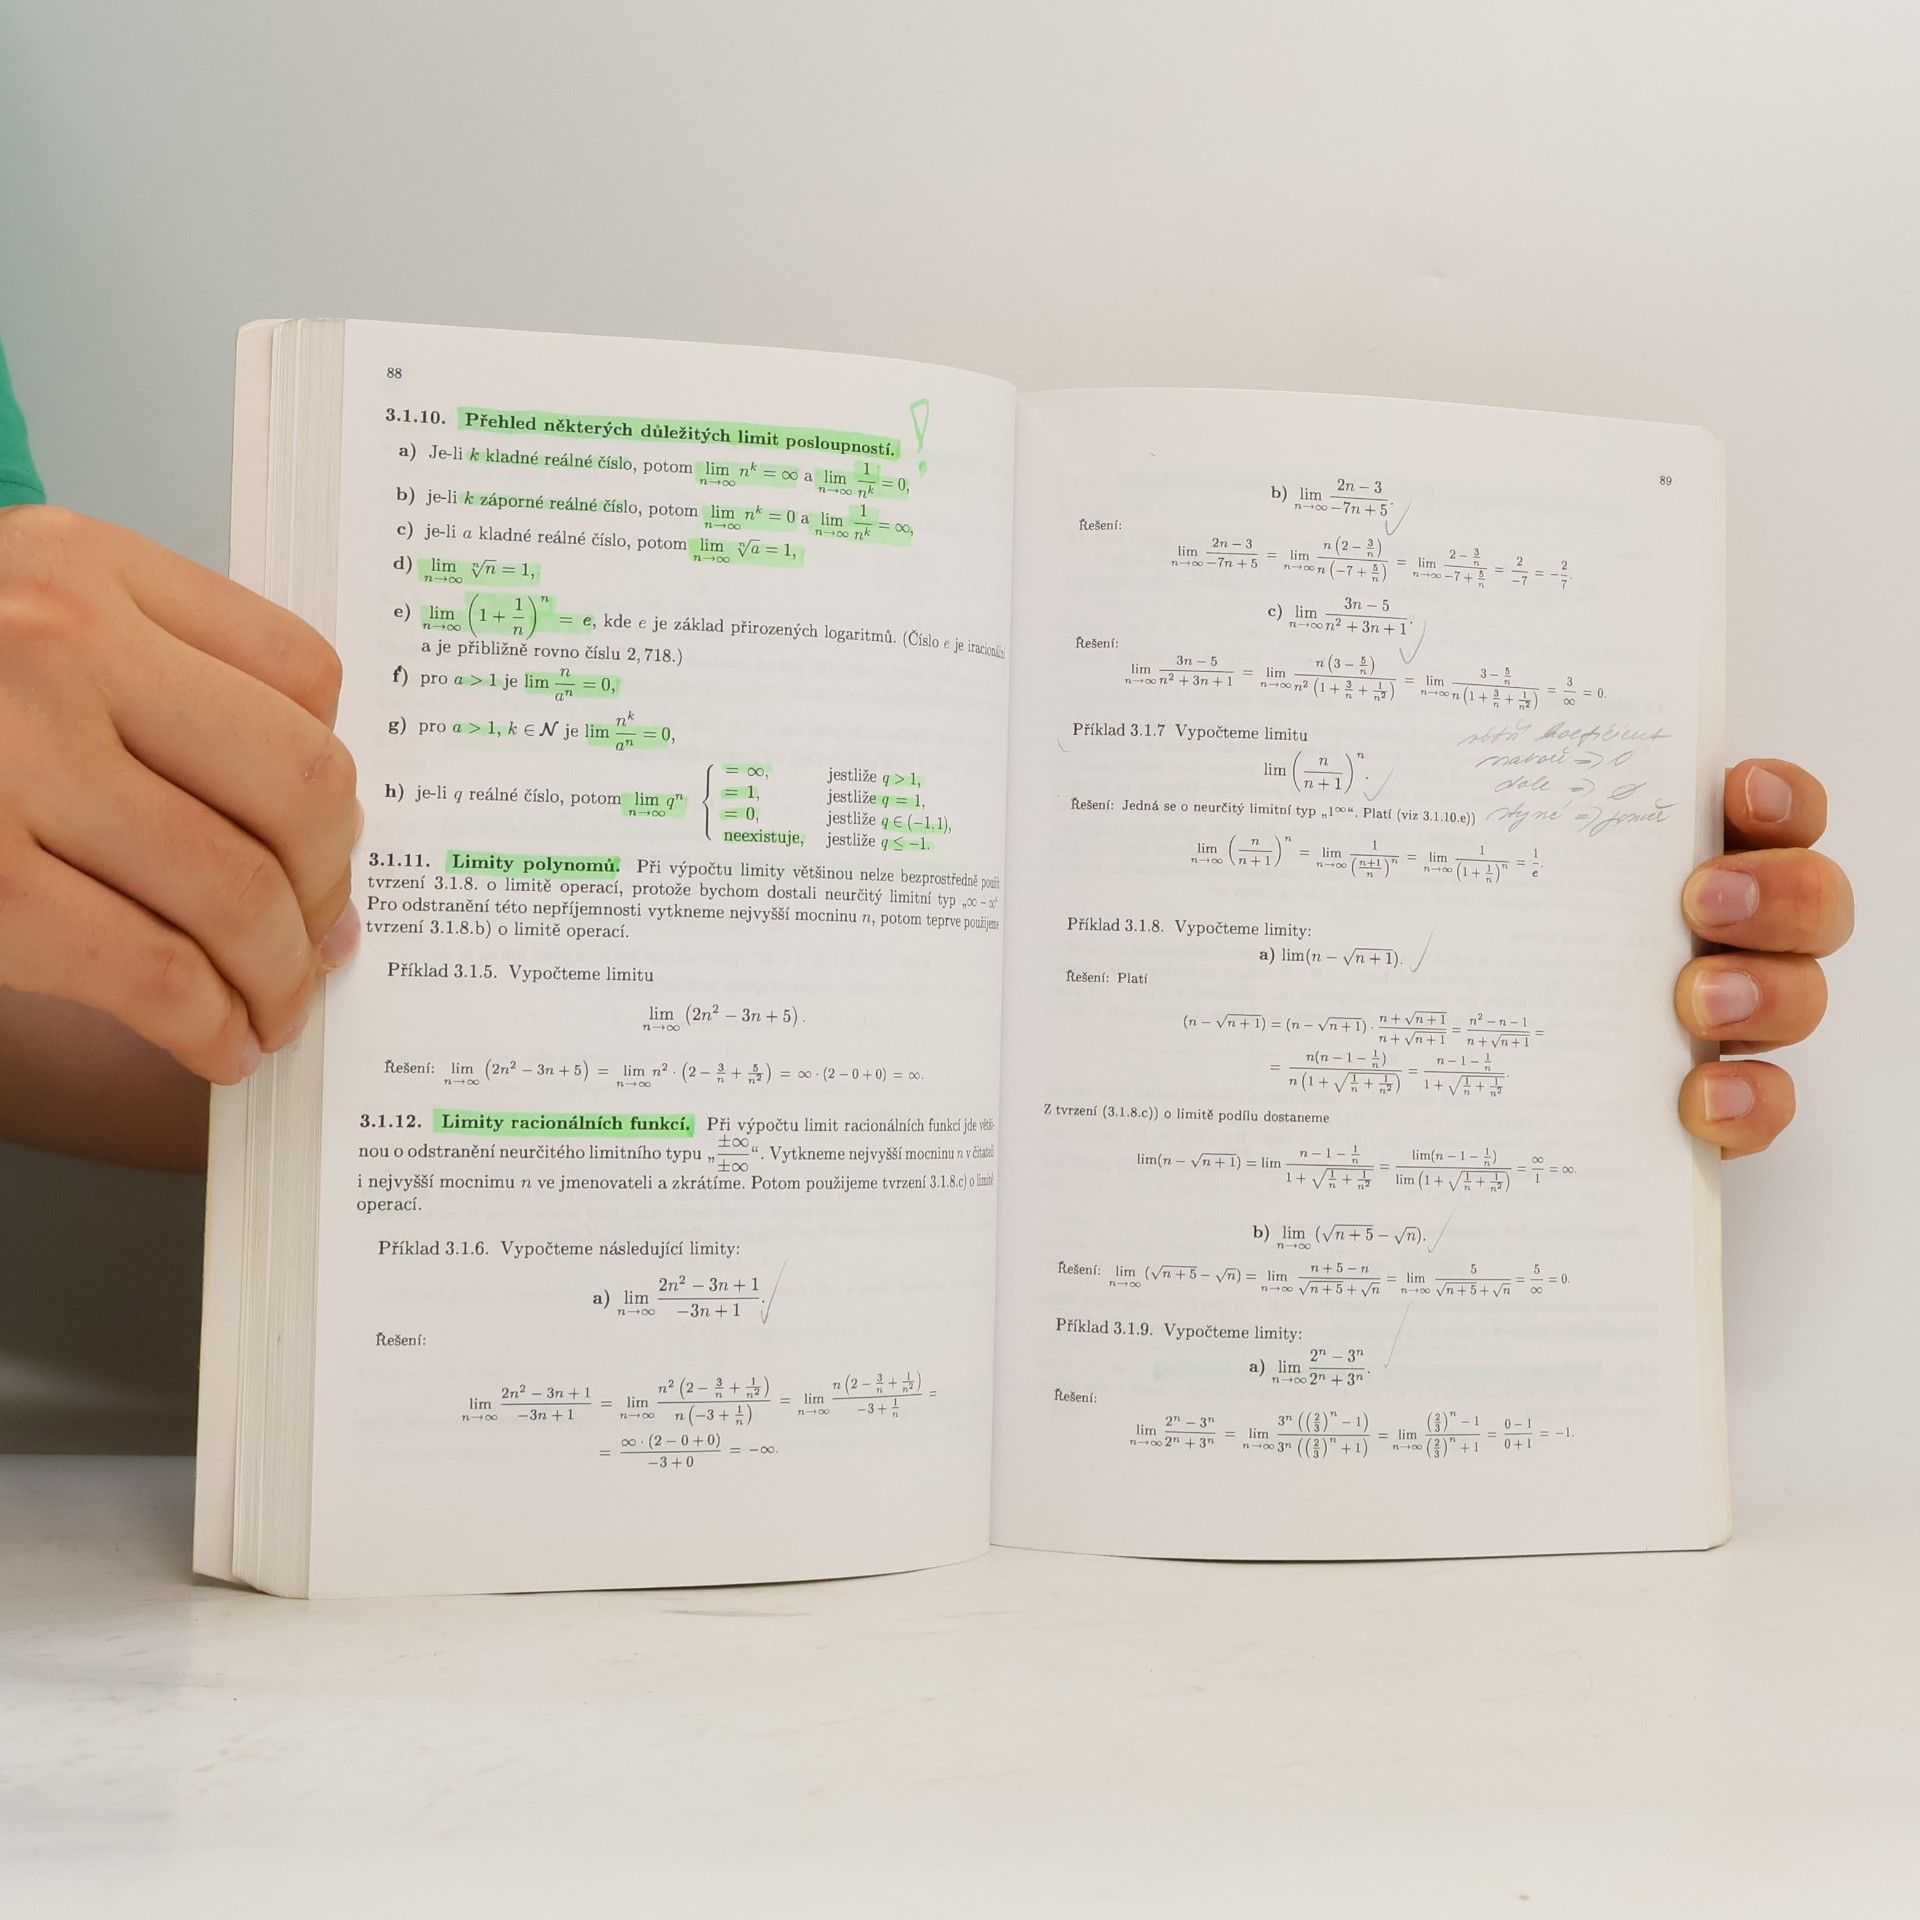 88
3.1.10. Přehled některých důležitých limit posloupností. !
a) Je-li k kladné reálné číslo, potom lim_{n→∞} n^k = ∞ a lim_{n→∞} 1/n^k = 0,
b) je-li k záporné reálné číslo, potom lim_{n→∞} n^k = 0 a lim_{n→∞} 1/n^k = ∞,
c) je-li a kladné reálné číslo, potom lim_{n→∞} ⁿ√a = 1,
d) lim_{n→∞} ⁿ√n = 1,
e) lim_{n→∞} (1 + 1/n)^n = e, kde e je základ přirozených logaritmů. (Číslo e je iracionální
a je přibližně rovno číslu 2,718.)
f) pro a > 1 je lim n/a^n = 0,
g) pro a > 1, k ∈ N je lim n^k/a^n = 0,
h) je-li q reálné číslo, potom lim_{n→∞} q^n { = ∞, jestliže q > 1,
= 1, jestliže q = 1,
= 0, jestliže q ∈ (−1,1),
neexistuje, jestliže q ≤ −1.
3.1.11. Limity polynomů. Při výpočtu limity většinou nelze bezprostředně použít
tvrzení 3.1.8. o limitě operací, protože bychom dostali neurčitý limitní typ „∞ − ∞“
Pro odstranění této nepříjemnosti vytkneme nejvyšší mocninu n, potom teprve použijeme
tvrzení 3.1.8.b) o limitě operací.
Příklad 3.1.5. Vypočteme limitu
lim_{n→∞} (2n² − 3n + 5).
Řešení: lim_{n→∞} (2n² − 3n + 5) = lim_{n→∞} n² · (2 − 3/n + 5/n²) = ∞ · (2 − 0 + 0) = ∞.
3.1.12. Limity racionálních funkcí. Při výpočtu limit racionálních funkcí jde větši-
nou o odstranění neurčitého limitního typu „±∞/±∞“. Vytkneme nejvyšší mocninu n v čitateli
i nejvyšší mocnimu n ve jmenovateli a zkrátíme. Potom použijeme tvrzení 3.1.8.c) o limitě
operací.
Příklad 3.1.6. Vypočteme následující limity:
a) lim_{n→∞} (2n² − 3n + 1)/(−3n + 1).
Řešení:
lim_{n→∞} (2n² − 3n + 1)/(−3n + 1) = lim_{n→∞} n²(2 − 3/n + 1/n²)/(n(−3 + 1/n)) = lim_{n→∞} n(2 − 3/n + 1/n²)/(−3 + 1/n) =
= ∞ · (2 − 0 + 0)/(−3 + 0) = −∞.
89
b) lim_{n→∞} (2n − 3)/(−7n + 5).
Řešení:
lim_{n→∞} (2n − 3)/(−7n + 5) = lim_{n→∞} n(2 − 3/n)/(n(−7 + 5/n)) = lim_{n→∞} (2 − 3/n)/(−7 + 5/n) = 2/−7 = −2/7.
c) lim_{n→∞} (3n − 5)/(n² + 3n + 1).
Řešení:
lim_{n→∞} (3n − 5)/(n² + 3n + 1) = lim_{n→∞} n(3 − 5/n)/(n²(1 + 3/n + 1/n²)) = lim_{n→∞} (3 − 5/n)/(n(1 + 3/n + 1/n²)) = 3/∞ = 0.
Příklad 3.1.7 Vypočteme limitu
lim (n/(n + 1))^n.
Řešení: Jedná se o neurčitý limitní typ „1^∞“. Platí (viz 3.1.10.e))
lim_{n→∞} (n/(n+1))^n = lim_{n→∞} 1/((n+1)/n)^n = lim_{n→∞} 1/(1 + 1/n)^n = 1/e.
Příklad 3.1.8. Vypočteme limity:
a) lim(n − √(n + 1)).
Řešení: Platí
(n − √(n + 1)) = (n − √(n + 1)) · (n + √(n + 1))/(n + √(n + 1)) = (n² − n − 1)/(n + √(n + 1)) =
= n(n − 1 − 1/n)/(n(1 + √(1/n + 1/n²))) = (n − 1 − 1/n)/(1 + √(1/n + 1/n²)).
Z tvrzení (3.1.8.c)) o limitě podílu dostaneme
lim(n − √(n + 1)) = lim (n − 1 − 1/n)/(1 + √(1/n + 1/n²)) = lim(n − 1 − 1/n)/lim(1 + √(1/n + 1/n²)) = ∞/1 = ∞.
b) lim_{n→∞} (√(n + 5) − √n).
Řešení: lim_{n→∞} (√(n + 5) − √n) = lim_{n→∞} (n + 5 − n)/(√(n + 5) + √n) = lim_{n→∞} 5/(√(n + 5) + √n) = 5/∞ = 0.
Příklad 3.1.9. Vypočteme limity:
a) lim_{n→∞} (2^n − 3^n)/(2^n + 3^n).
Řešení:
lim_{n→∞} (2^n − 3^n)/(2^n + 3^n) = lim_{n→∞} 3^n((2/3)^n − 1)/(3^n((2/3)^n + 1)) = lim_{n→∞} ((2/3)^n − 1)/((2/3)^n + 1) = (0 − 1)/(0 + 1) = −1.